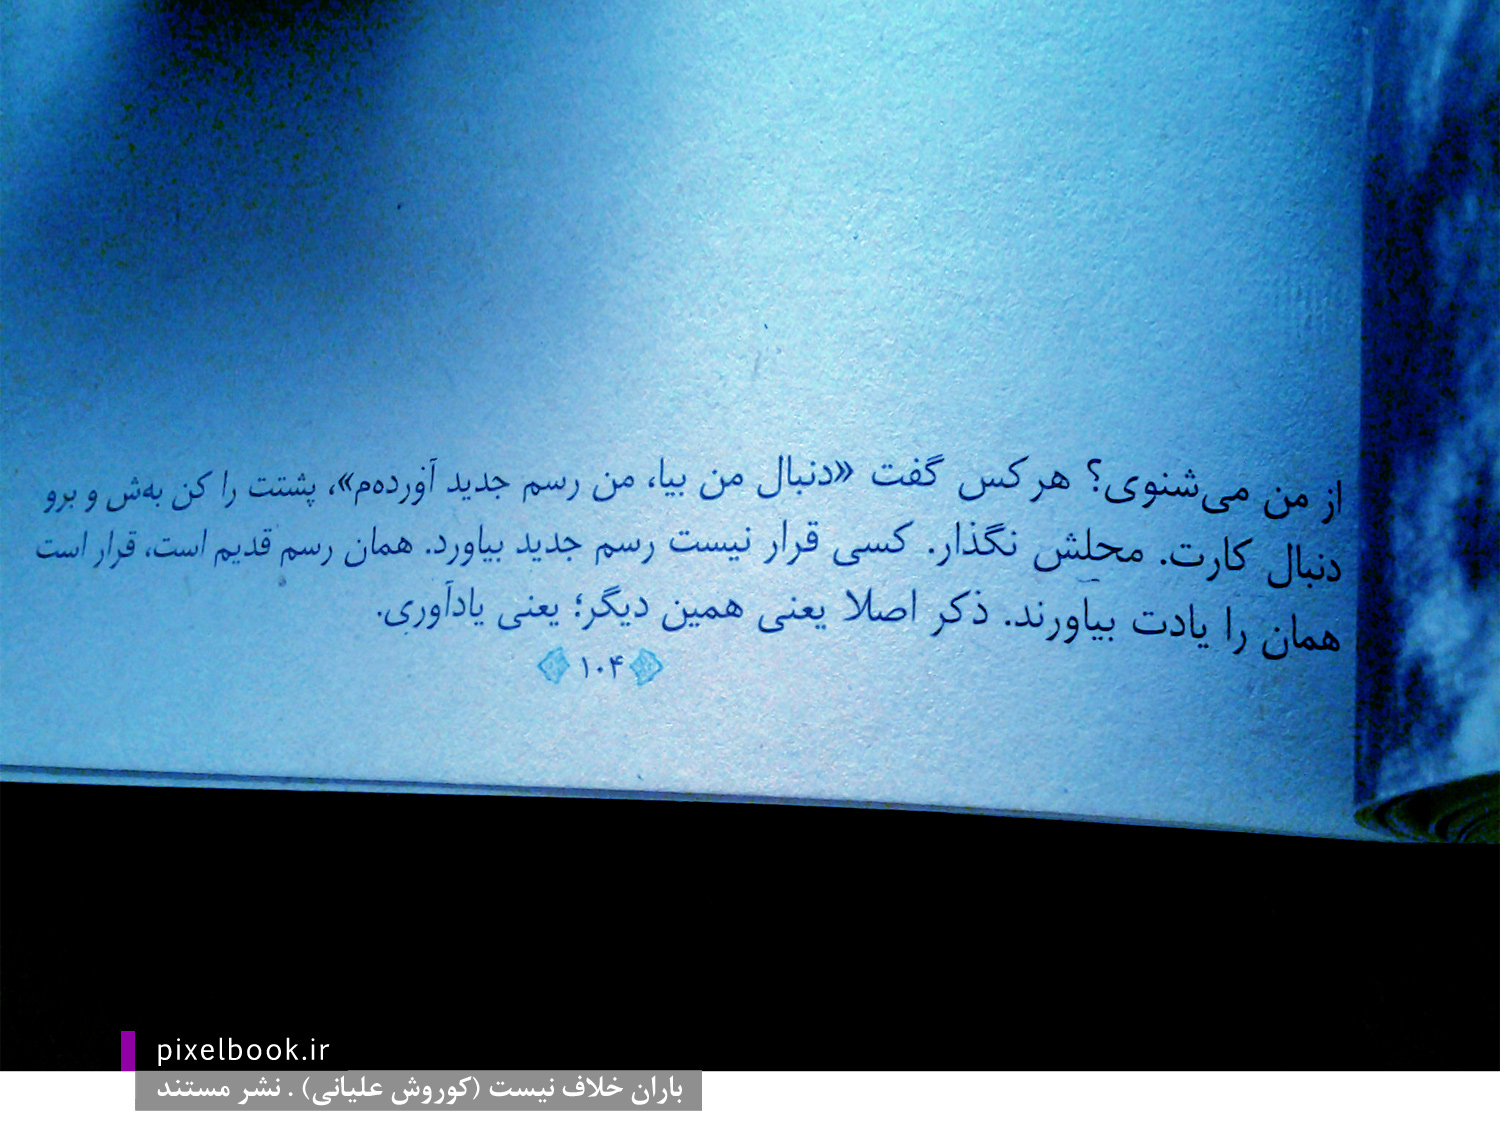 از من می‌شنوی؟ هرکس گفت «دنبال من بیا، من رسم جدید آورده‌م»، پشتت را کن به‌ش و برو
دنبال کارت. محلش نگذار. کسی قرار نیست رسم جدید بیاورد. همان رسم قدیم است، قرار است
همان را یادت بیاورند. ذکر اصلا یعنی همین دیگر؛ یعنی یادآوری.
۱۰۴
pixelbook.ir
باران خلاف نیست (کوروش علیانی) . نشر مستند